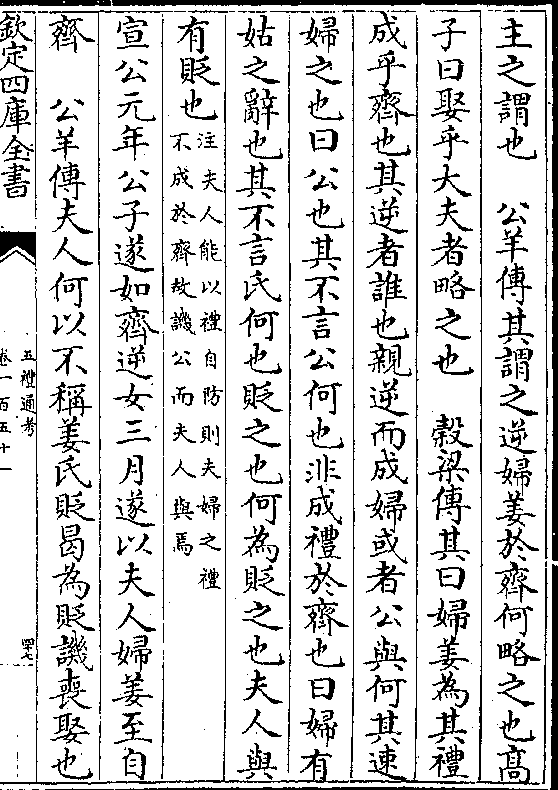 主之謂也　　公羊傳其謂之逆婦姜於齊何略之也髙
子曰娶乎大夫者略之也　　穀梁傳其曰婦姜為其禮
成乎齊也其逆者誰也親逆而成婦或者公與何其速
婦之也曰公也其不言公何也非成禮於齊也曰婦有
姑之辭也其不言氏何也貶之也何為貶之也夫人與
有貶也
注夫人能以禮自防則夫婦之禮
不成於齊故譏公而夫人與焉
宣公元年公子遂如齊逆女三月遂以夫人婦姜至自
齊　　公羊傳夫人何以不稱姜氏貶曷為貶譏喪娶也
欽定四庫全書
五禮通考
卷一百五十一
四七